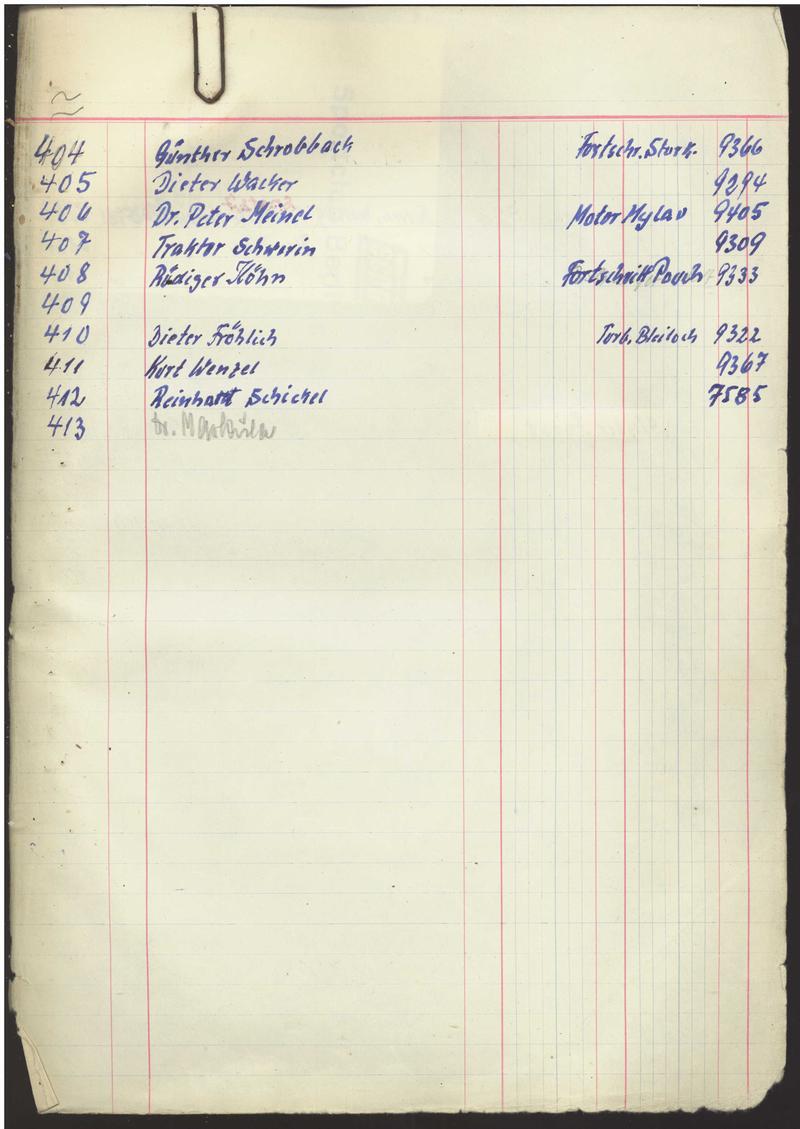 404 Günther Schrobback Fortschr. Stork. 9366
405 Dieter Wacker 9294
406 Dr. Peter Meinel Motor Mylau 9405
407 Traktor Schwerin 9309
408 Rüdiger Höhn Fortschritt 9333
409
410 Dieter Fröhlich Turb. Bleiloch 9322
411 Kurt Wenzel 9367
412 Reinhardt Schickel 7585
413 Dr.